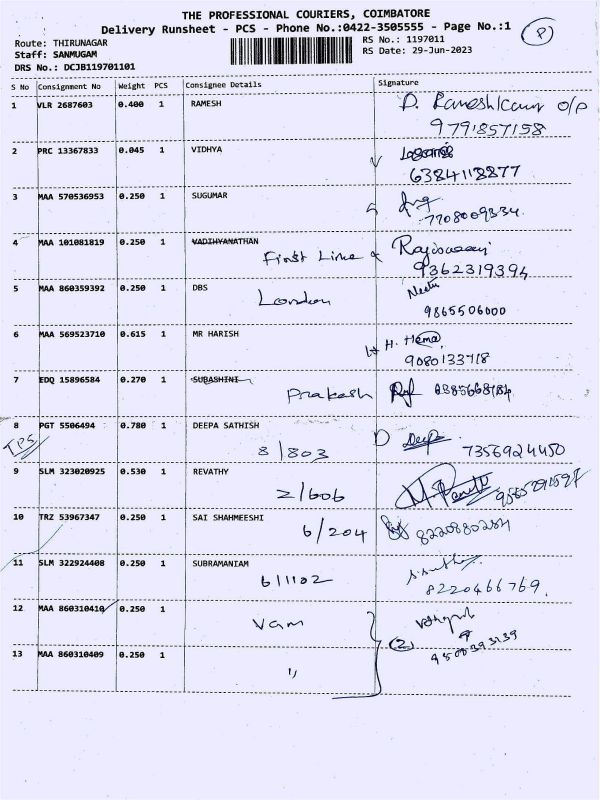 THE PROFESSIONAL COURIERS, COIMBATORE
Delivery Runsheet - PCS - Phone No.:0422-3505555 - Page No.:1
8
Route: THIRUNAGAR
RS No.: 1197011
Staff: SANMUGAM
RS Date: 29-Jun-2023
DRS No.: DCJB119701101
S No Consignment No Weight PCS Consignee Details Signature
1 VLR 2687603 0.400 1 RAMESH
D. Rameshkumar O/P
9791857158
2 PRC 13367833 0.045 1 VIDHYA
6384118877
3 MAA 570536953 0.250 1 SUGUMAR
7708009334
4 MAA 101081819 0.250 1 VADIHYANATHAN
First Line
9362319394
5 MAA 860359392 0.250 1 DBS
London
Neetu
9865506000
6 MAA 569523710 0.615 1 MR HARISH
H. Hema
9080133718
7 EDQ 15896584 0.270 1 SUBASHINI
Prakash
8 PGT 5506494 0.780 1 DEEPA SATHISH
TPS
8/803
D Deepa
7356924450
9 SLM 323020925 0.530 1 REVATHY
2/606
10 TRZ 53967347 0.250 1 SAI SHAHMEESHI
6/204
8220880284
11 SLM 322924408 0.250 1 SUBRAMANIAM
6/1102
8220466769
12 MAA 860310410 0.250 1
Vam
2
9500393139
13 MAA 860310409 0.250 1
"